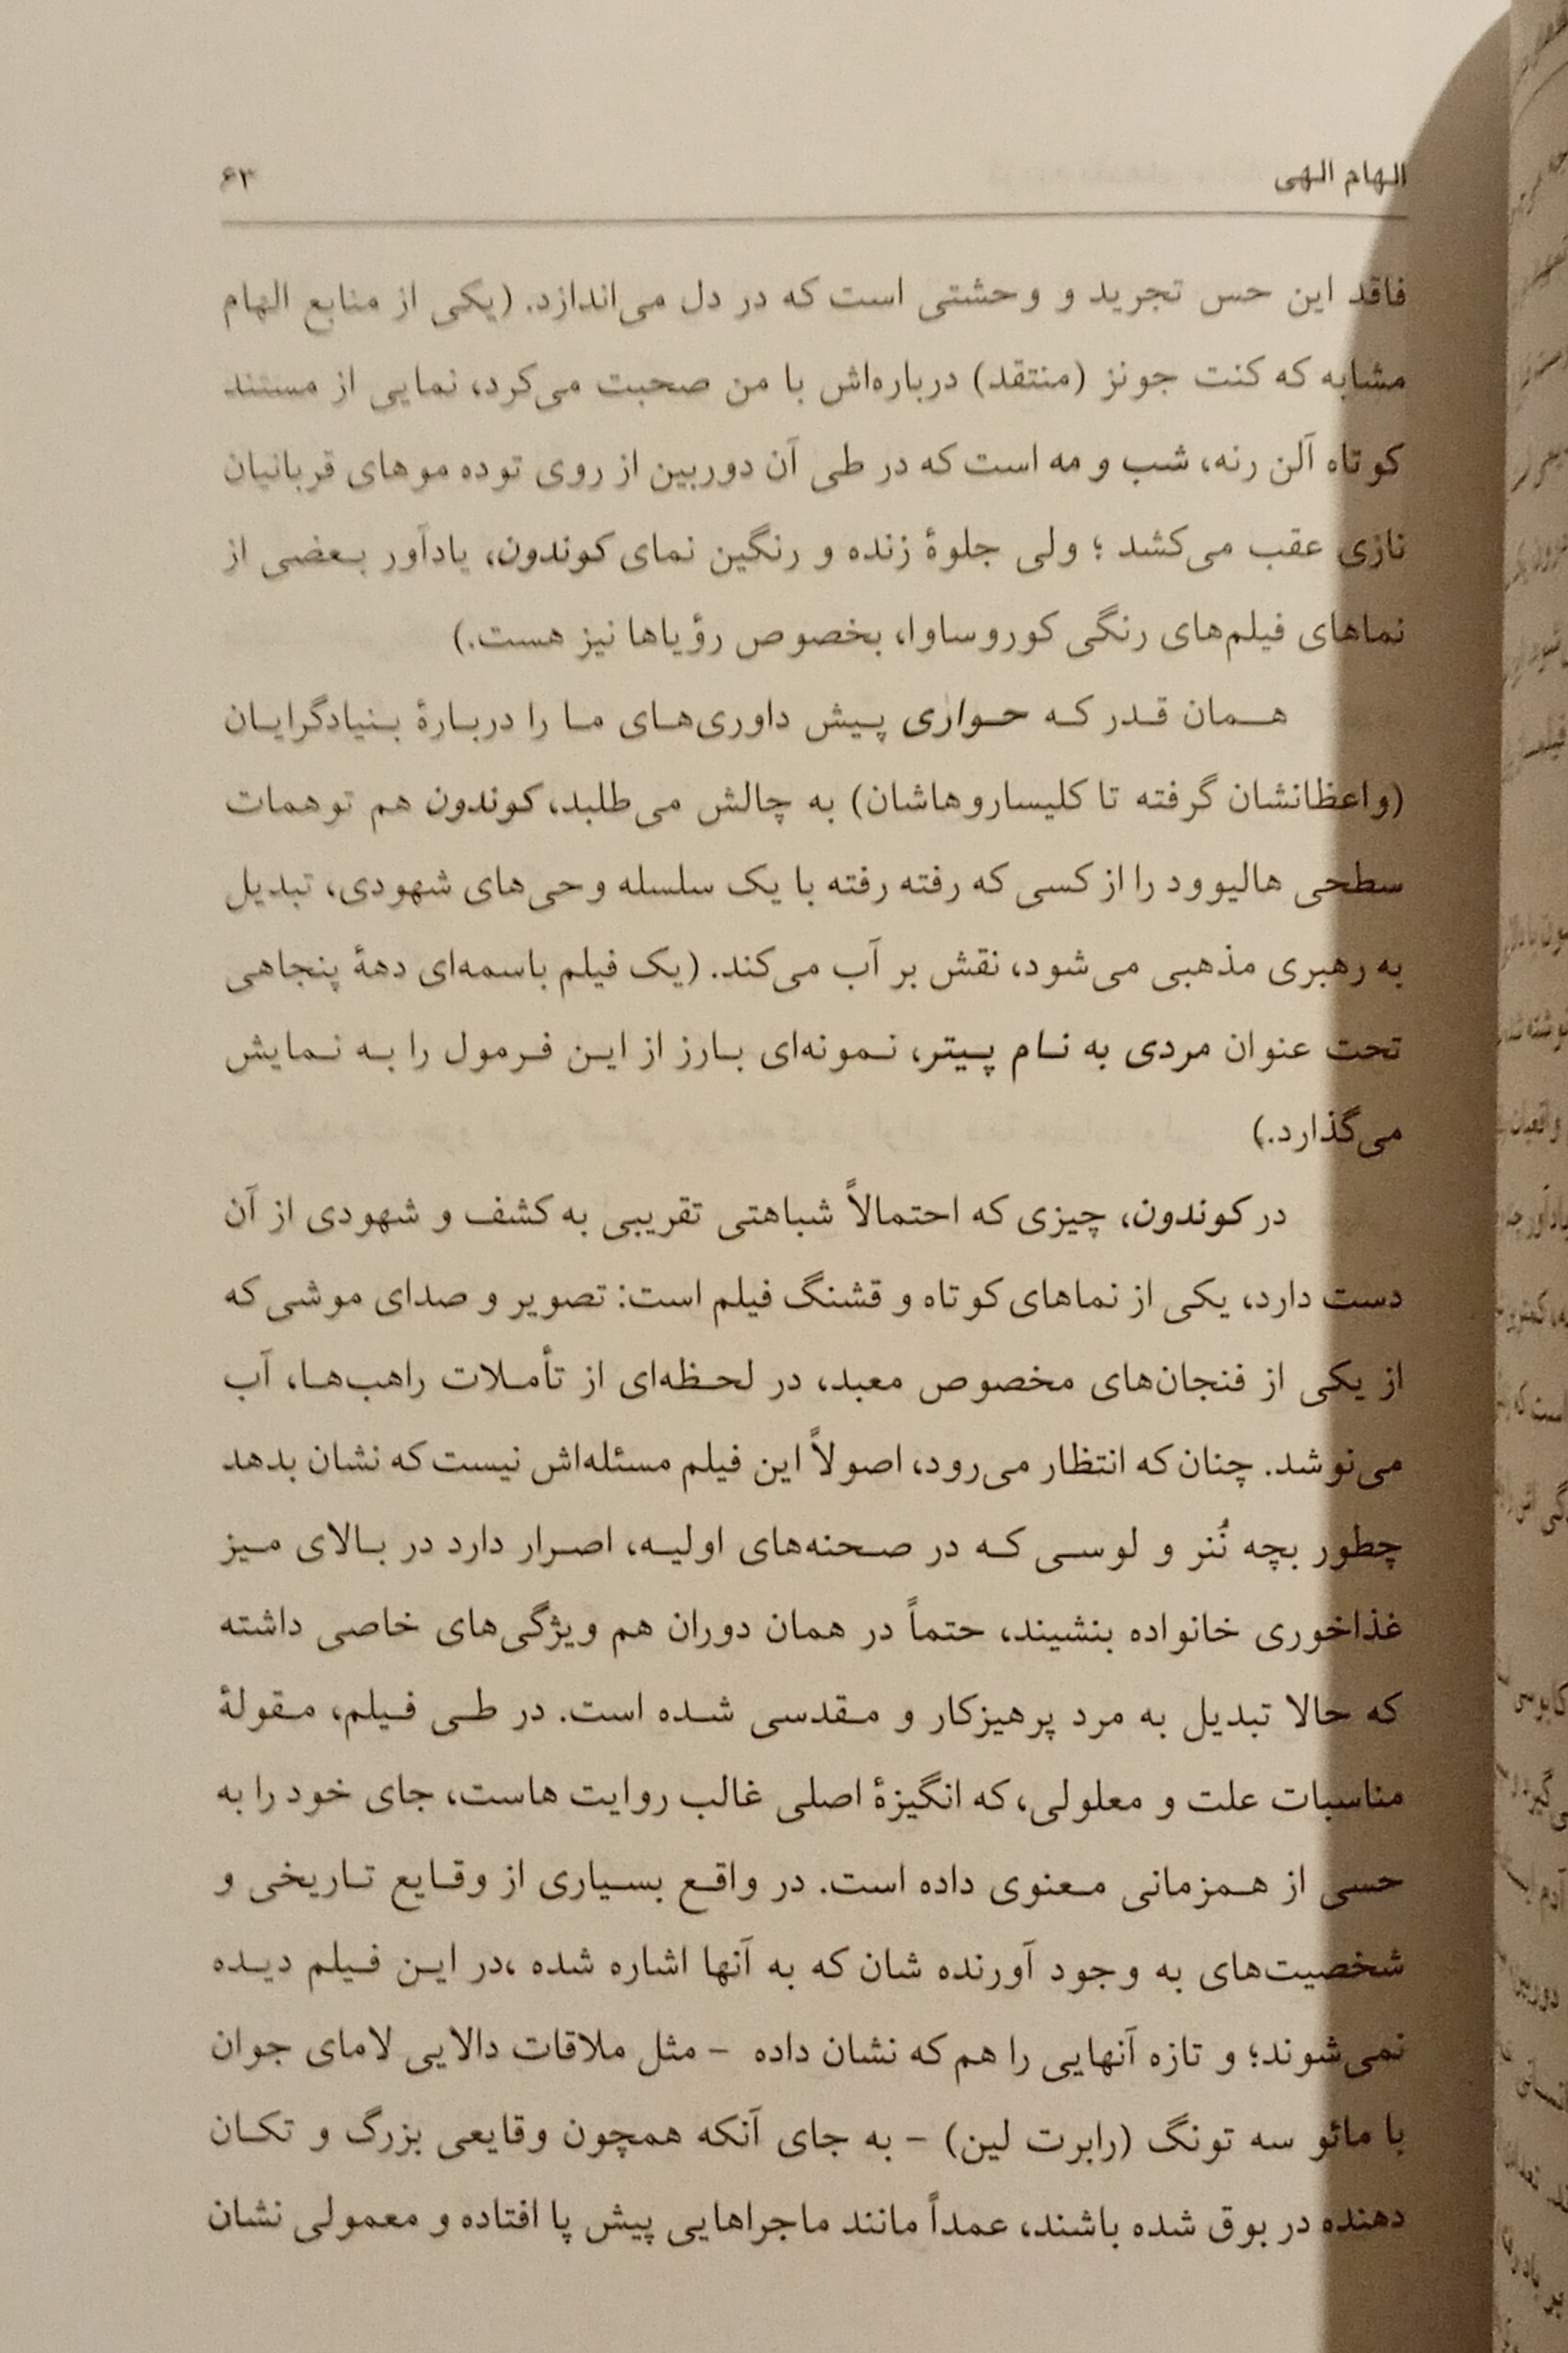 الهام الهی ۶۳
فاقد این حس تجرید و وحشتی است که در دل می‌اندازد. (یکی از منابع الهام
مشابه که کنت جونز (منتقد) درباره‌اش با من صحبت می‌کرد، نمایی از مستند
کوتاه آلن رنه، شب و مه است که در طی آن دوربین از روی توده موهای قربانیان
نازی عقب می‌کشد ؛ ولی جلوهٔ زنده و رنگین نمای کوندون، یادآور بعضی از
نماهای فیلم‌های رنگی کوروساوا، بخصوص رؤیاها نیز هست.)
همان قدر که حواری پیش داوری‌های ما را دربارهٔ بنیادگرایان
(واعظانشان گرفته تا کلیساروهاشان) به چالش می‌طلبد، کوندون هم توهمات
سطحی هالیوود را از کسی که رفته رفته با یک سلسله وحی‌های شهودی، تبدیل
به رهبری مذهبی می‌شود، نقش بر آب می‌کند. (یک فیلم باسمه‌ای دههٔ پنجاهی
تحت عنوان مردی به نام پیتر، نمونه‌ای بارز از این فرمول را به نمایش
می‌گذارد.)
در کوندون، چیزی که احتمالاً شباهتی تقریبی به کشف و شهودی از آن
دست دارد، یکی از نماهای کوتاه و قشنگ فیلم است: تصویر و صدای موشی که
از یکی از فنجان‌های مخصوص معبد، در لحظه‌ای از تأملات راهب‌ها، آب
می‌نوشد. چنان که انتظار می‌رود، اصولاً این فیلم مسئله‌اش نیست که نشان بدهد
چطور بچه نُنر و لوسی که در صحنه‌های اولیه، اصرار دارد در بالای میز
غذاخوری خانواده بنشیند، حتماً در همان دوران هم ویژگی‌های خاصی داشته
که حالا تبدیل به مرد پرهیزکار و مقدسی شده است. در طی فیلم، مقولهٔ
مناسبات علت و معلولی، که انگیزهٔ اصلی غالب روایت هاست، جای خود را به
حسی از همزمانی معنوی داده است. در واقع بسیاری از وقایع تاریخی و
شخصیت‌های به وجود آورنده شان که به آنها اشاره شده ،در این فیلم دیده
نمی‌شوند؛ و تازه آنهایی را هم که نشان داده - مثل ملاقات دالایی لامای جوان
با مائو سه تونگ (رابرت لین) - به جای آنکه همچون وقایعی بزرگ و تکان
دهنده در بوق شده باشند، عمداً مانند ماجراهایی پیش پا افتاده و معمولی نشان